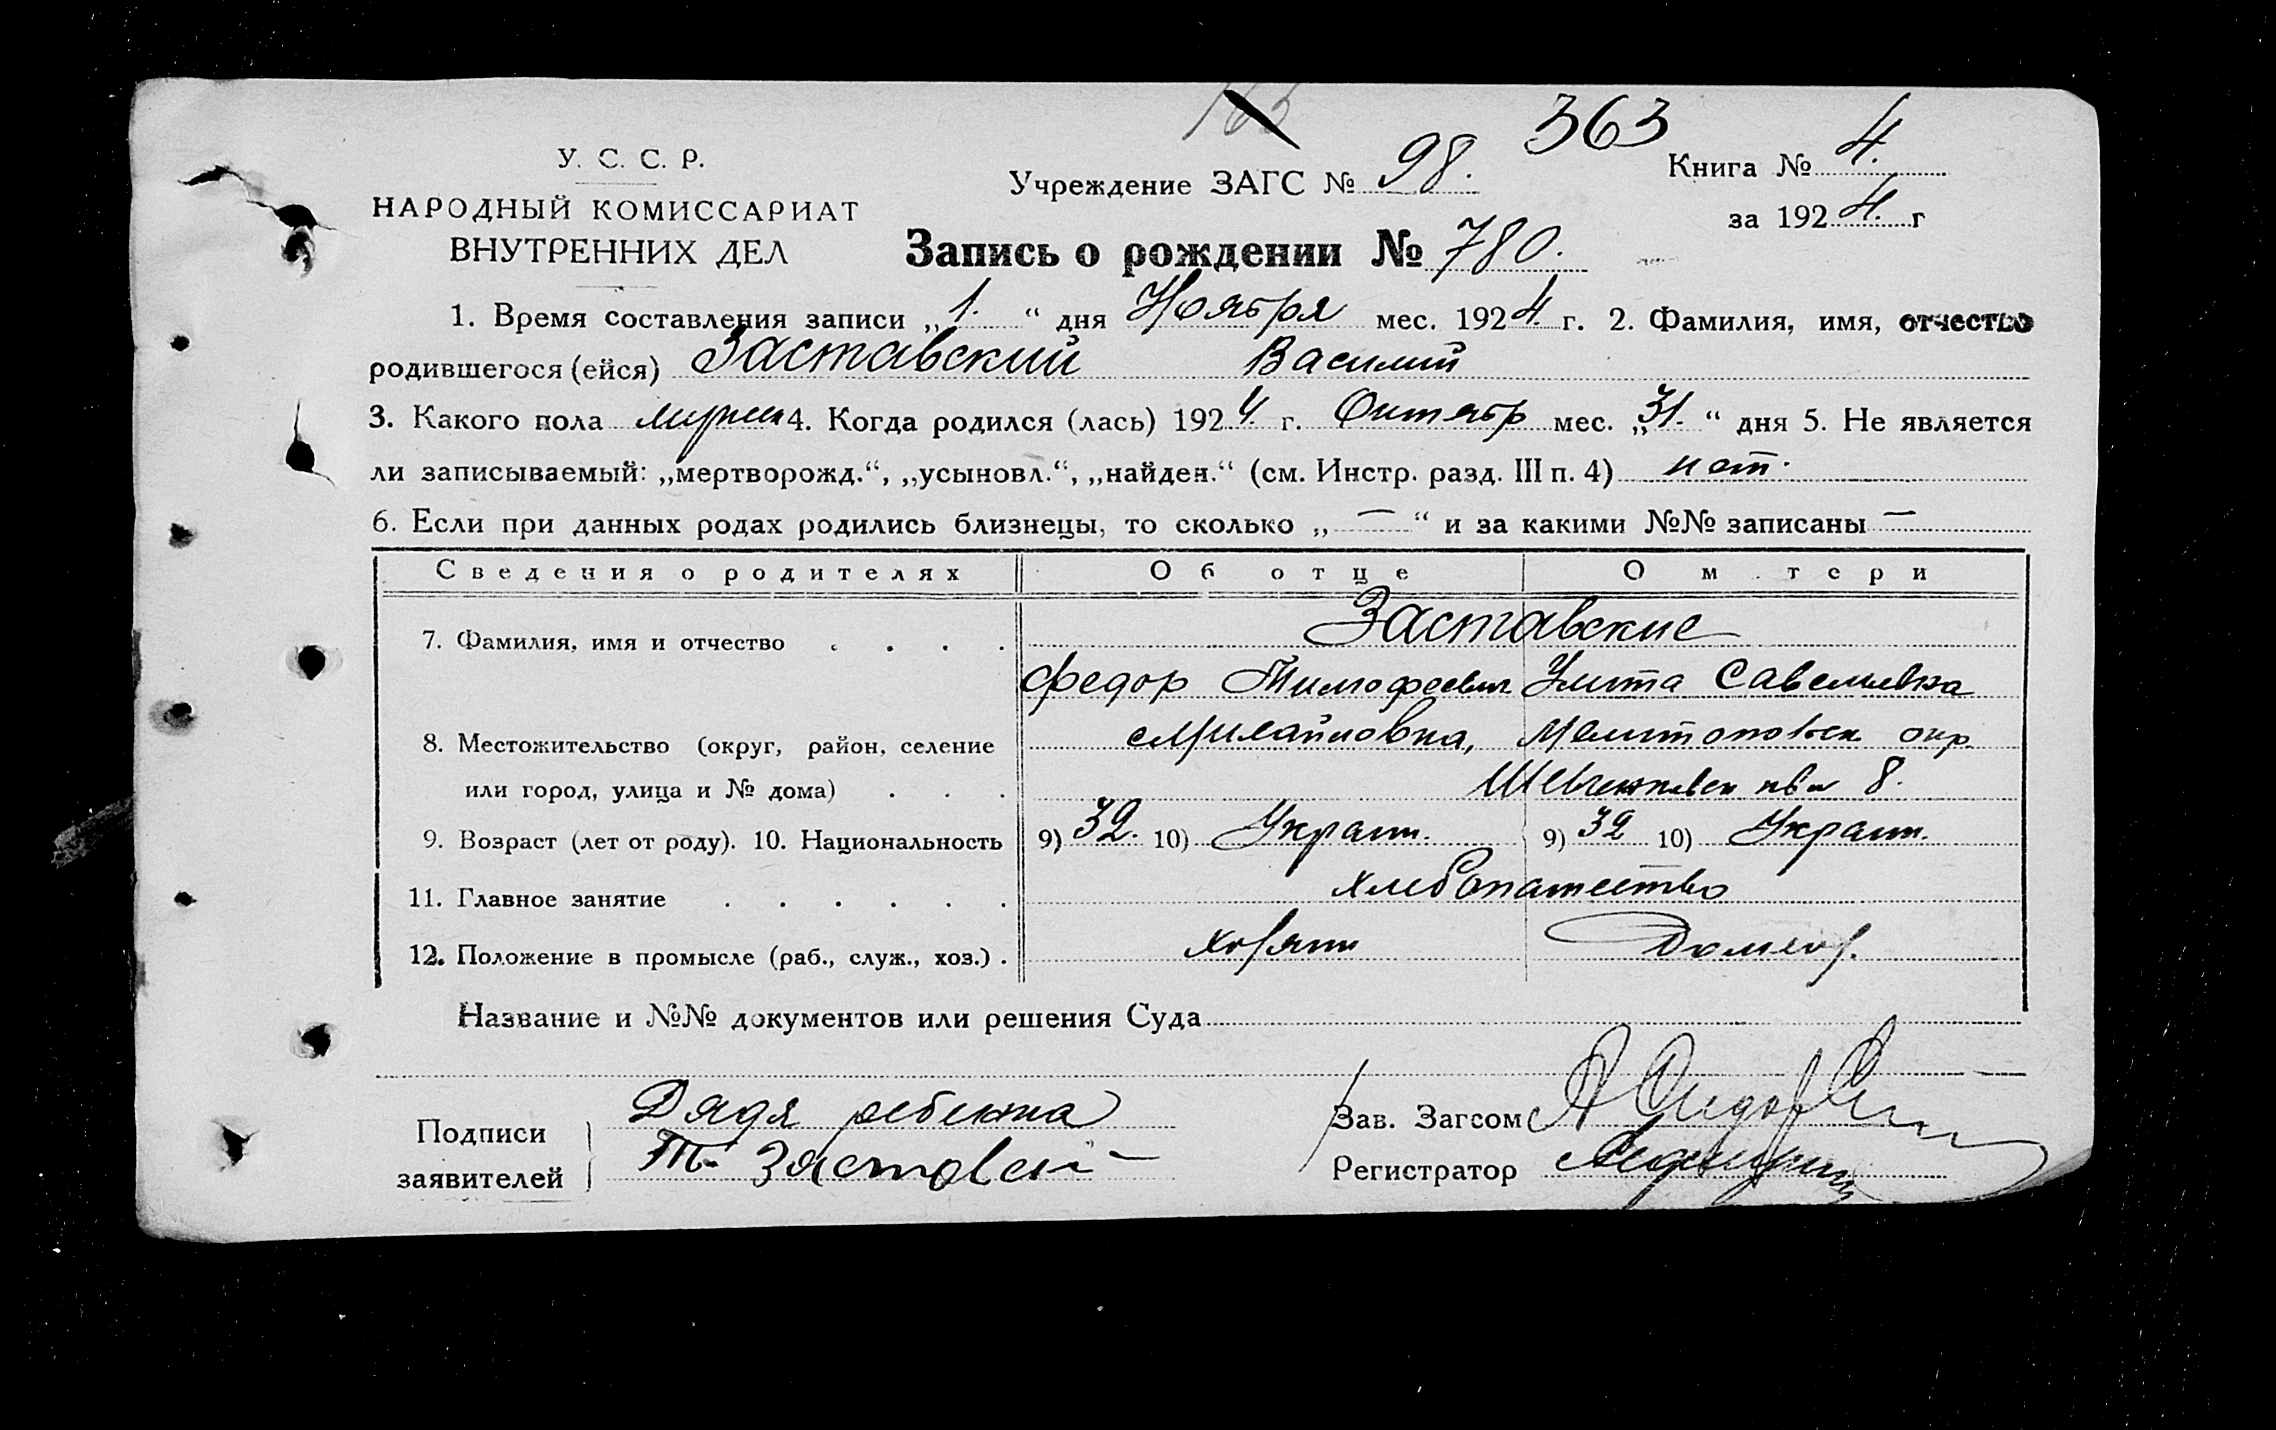 363
У. С. С. Р.
Учреждение ЗАГС № 98.
Книга № 4.
НАРОДНЫЙ КОМИССАРИАТ
за 1924. г
ВНУТРЕННИХ ДЕЛ
Запись о рождении № 780.
1. Время составления записи „1.“ дня Ноября мес. 1924. г. 2. Фамилия, имя, отчество
родившегося (ейся) Заставский Василий
3. Какого пола мужск 4. Когда родился (лась) 1924. г. Октябр мес. „31.“ дня 5. Не является
ли записываемый: „мертворожд.“, „усыновл.“, „найден.“ (см. Инстр. разд. III п. 4) нет.
6. Если при данных родах родились близнецы, то сколько „—“ и за какими №№ записаны —
Сведения о родителях Об отце О м тери
7. Фамилия, имя и отчество . . . . Заставские
Федор Тимофеевич Улита Савельевна
8. Местожительство (округ, район, селение с Михайловка, Мелитоповск окр
или город, улица и № дома) . . . 8.
9. Возраст (лет от роду). 10. Национальность 9) 32. 10) Украин. 9) 32 10) Украин.
11. Главное занятие . . . . . . хлебопашество
12. Положение в промысле (раб., служ., хоз.) . хозяин Домхоз.
Название и №№ документов или решения Суда
Подписи Дядя ребенка Зав. Загсом
заявителей Т. Заставский Регистратор